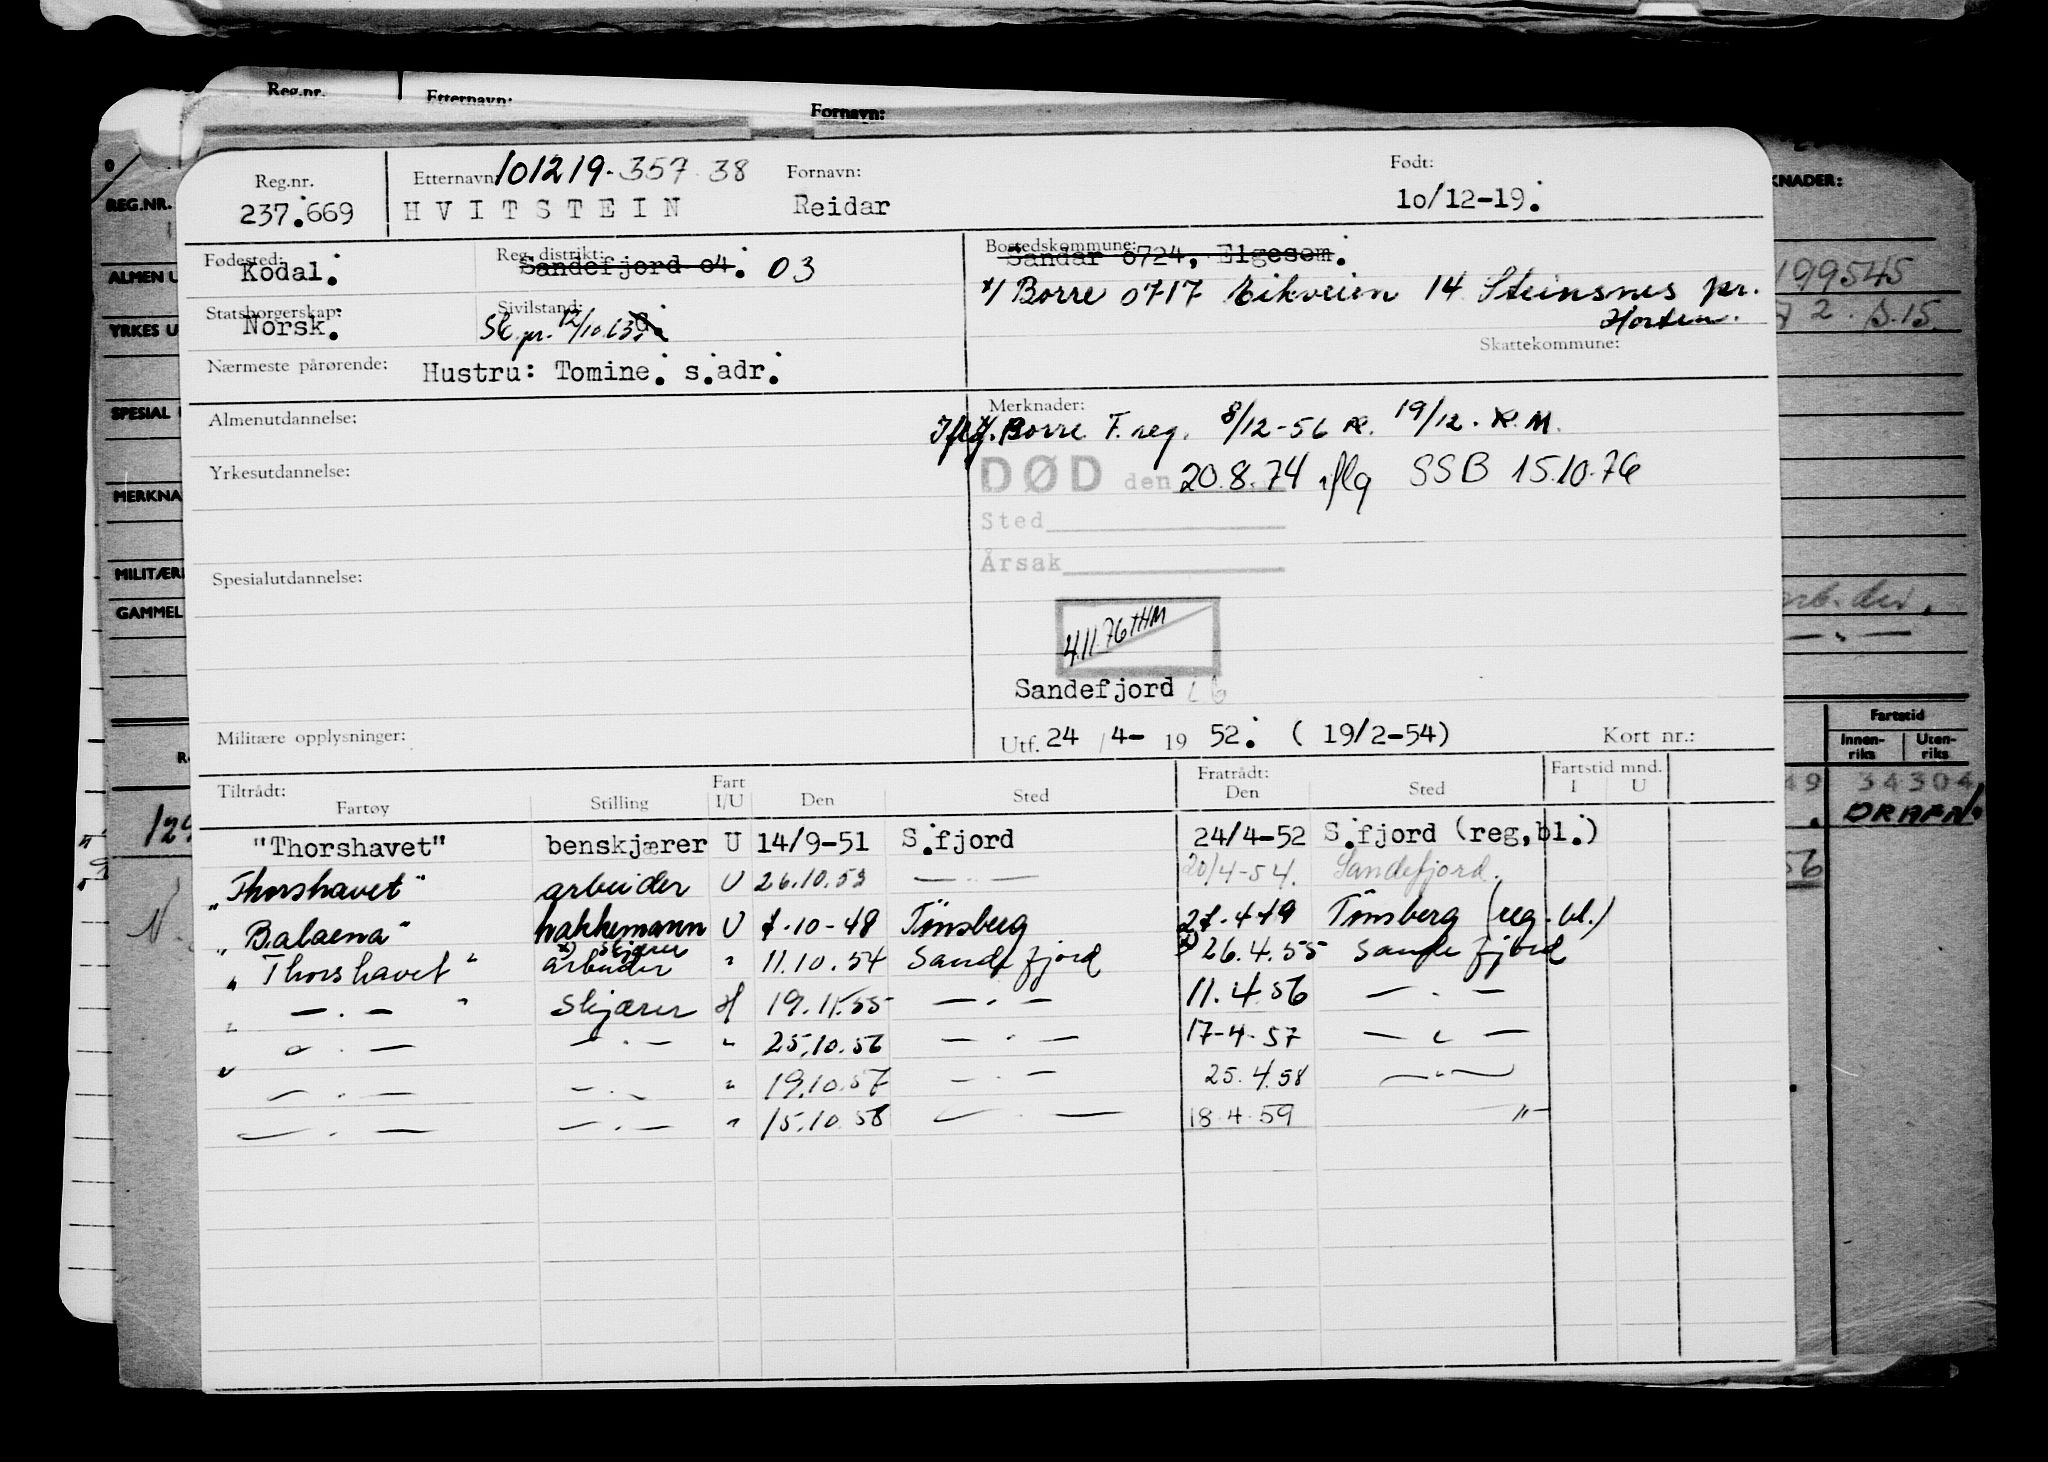 Reg.nr. Etternavn: Fornavn:
Reg.nr. Etternavn 101219-357 38 Fornavn: Født:
237.669 HVITSTEIN Reidar 10/12-19.
Fødested: Kodal. Reg. distrikt: Sandefjord 04. 03 Bostedskommune: Sandar 0724, Elgesem.
x/ Borre 0717 Eikveien 14 Steinsnes pr.
Horten.
Statsborgerskap: Norsk. Sivilstand: Sk. pr. 12/10.63 G.
Skattekommune:
Nærmeste pårørende: Hustru: Tomine. s.adr.
Almenutdannelse: Merknader:
Iflg. Borre F.reg. 8/12-56 R. 19/12. K.M.
Yrkesutdannelse: DØD den 20.8.74 iflg SSB 15.10.76
Sted
Årsak
Spesialutdannelse:
4.11.76 HM
Sandefjord
Militære opplysninger: Utf. 24/4- 19 52. ( 19/2-54) Kort nr.:
Tiltrådt: Fart Fratrådt: Fartstid mnd.
Fartøy Stilling I/U Den Sted Den Sted I U
"Thorshavet" benskjærer U 14/9-51 S.fjord 24/4-52 S.fjord (reg,bl.)
"Thorshavet" arbeider U 26.10.53 — " — 20/4-54. Sandefjord.
"Balaena" hakkemann U 7-10-48 Tönsberg 27-4-49 Tönsberg (reg.bl.)
x) skjærer
"Thorshavet" arbeider " 11.10.54 Sandefjord x) 26.4.55 Sandefjord
" — . — " Skjærer H 19.11.55 — . — 11.4.56 — . —
" — . — — . — " 25.10.56 — . — 17-4-57 — " —
— . — — . — " 19.10.57 — . — 25.4.58 — " —
— . — — . — " 15.10.58 — . — 18.4.59 — " —
REG.NR.
ALMEN U
YRKES U
SPESIAL
MERKNA
MILITÆRE
GAMMEL
KNADER:
199545
2. S.15.
arb.der.
Fartstid
Innen-riks Uten-riks
49 34304
DRAFN
56